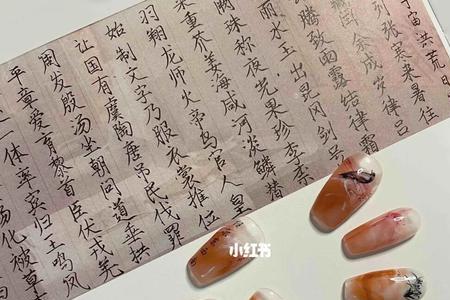 宙洪荒日
列张寒来暑往
闰余成岁律吕
腾致雨露结律霜
丽水玉出昆冈剑号
珠称夜光果珍李柰
菜重芥姜海咸河淡鳞潜
羽翔龙师火帝鸟官人皇
始制文字乃服衣裳推位
让国有虞陶唐吊民伐罪
周发殷汤坐朝问道垂拱
平章爱育黎首臣伏戎羌
一体率宾归王鸣凤
场化被草
小红书